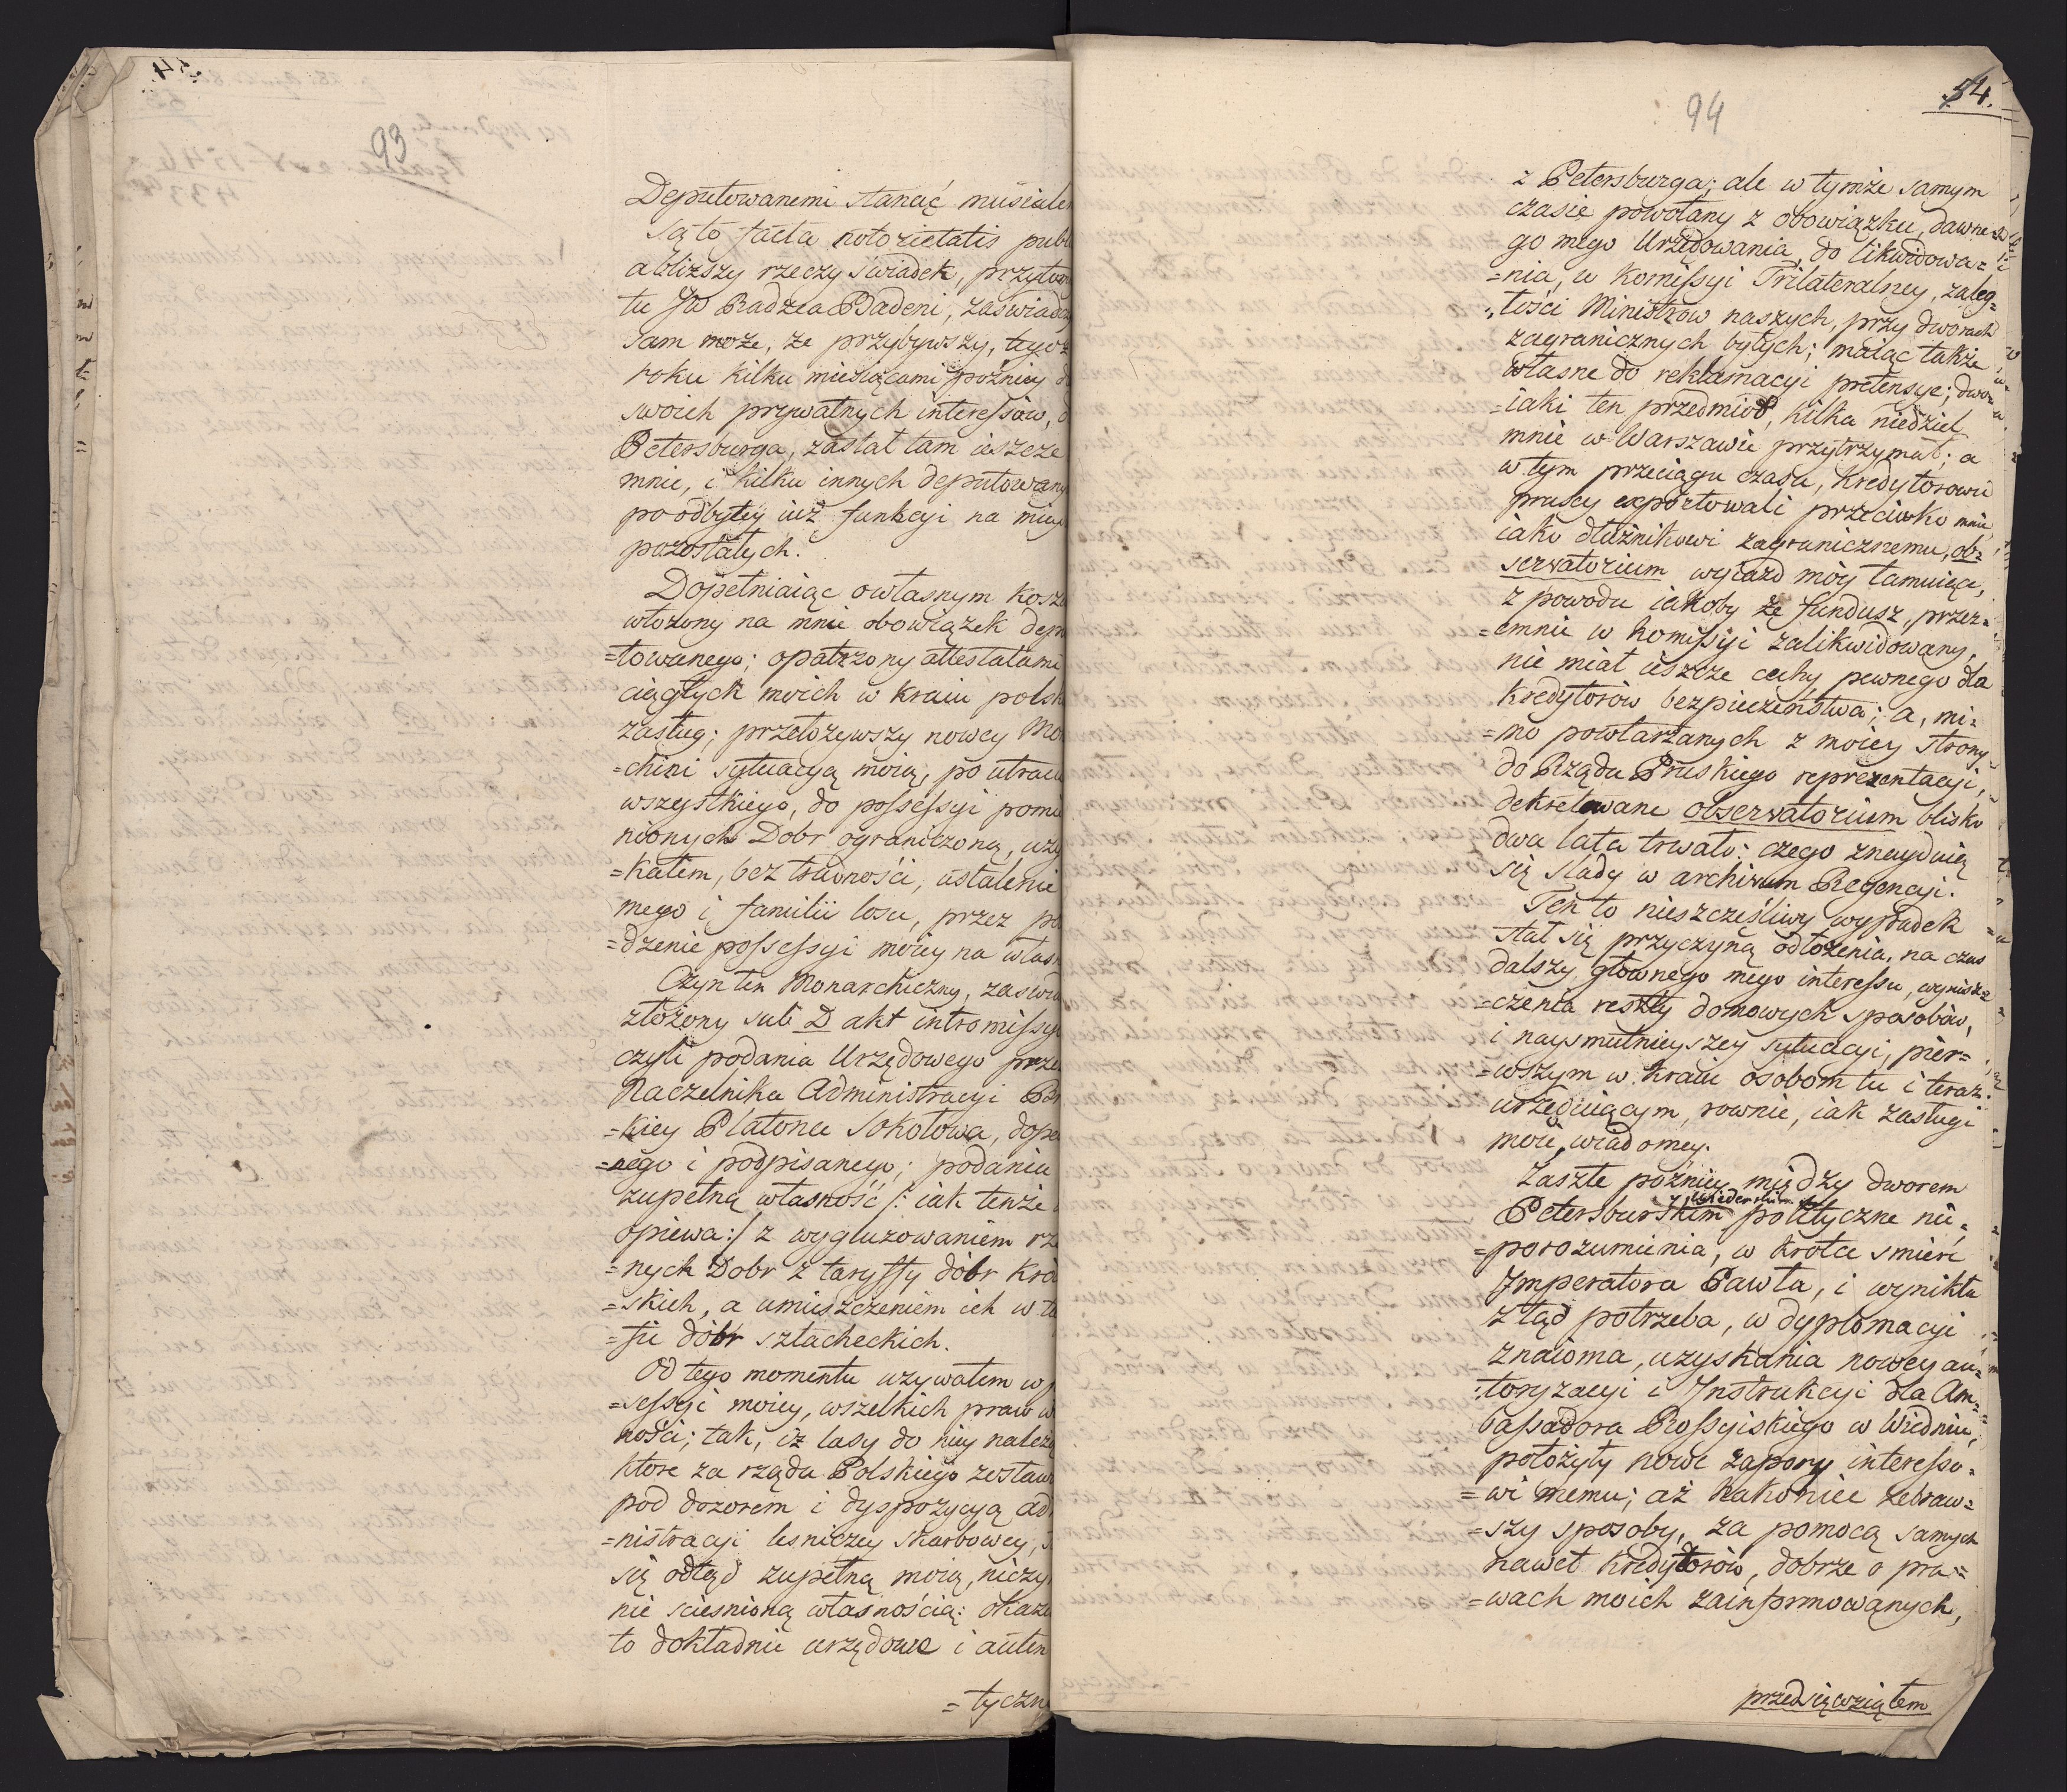 93
Deputowanemi stanąć musiałem
są to facta notorietatis publ
a bliższy rzeczy świadek, przytom
tu JW Radzca Badeni, zaświadczy
sam może, że przybywszy, tegoż
roku kilku miesiącami poźniey d
swoich prywatnych interessów, d
Petersburga, zastał tam ieszcze
mnie, i kilku innych deputowany
po odbytey iuż funkcyi na miey
pozostałych.
Dopełniaiąc o własnym kosz
włożony na mnie obowiązek depu
=towanego; opatrzony attestatami
ciągłych moich w kraiu polsk
zasług; przełożywszy nowey Mo
=chini sytuacyą moią, po utraci
wszystkiego, do possessyi pomie
nionych Dobr ograniczoną, uzy
=kałem, bez trudności, ustalenie
mego i familii losu, przez po
=dzenie possessyi moiey na własn
Czyn ten Monarchiczny, zaświa
złożony sub D akt intromissy
czyli podania Urzędowego prze
Naczelnika Administracyi
=kiey Platona Sokołowa, dope
=nego i podpisanego; podania
zupełną własność /: iak tenże
opiewa:/ z wygluzowaniem rze
=nych Dobr z taryffy dóbr kró
=skich, a umieszczeniem ich w ta
=fie dóbr szlacheckich.
Od tego momentu używałem w p
=sessyi moiey, wszelkich praw w
ności; tak, iż lasy do niey należą
ktore za rządu Polskiego zostaw
pod dozorem i dyspozycyą ad
=nistracyi leśniczey skarbowey, s
się odtąd zupełną moią, niczym
nie ścieśnioną własnością: okaże
to dokładnie urzędowe i auten
=tyczn
94
54.
z Petersburga; ale w tymże samym
czasie powołany z obowiązku, dawne=
go mego Urzędowania, do likwidowa=
=nia, w Komissyi Trilateralney, zaleg=
„łości Ministrów naszych, przy dworach
zagranicznych byłych; maiąc także
własne do reklamacyi pretensye; dwo
=iaki ten przedmiot, kilka niedziel
mnie w Warszawie przytrzymał; a
w tym przeciągu czasu, Kredytorowie
pruscy exportowali przeciwko mnie,
iako dłużnikowi zagranicznemu, ob=
servatorium wyiazd móy tamuiące,
z powodu iakoby że fundusz, przez=
=emnie w Komissyi zalikwidowany,
nie miał ieszcze cechy pewnego dla
kredytorów bezpieczeństwa; a, mi=
=mo powtarzanych z moiey strony
do Rządu Pruskiego reprezentacyi,
dekretowane observatorium blisko
dwa lata trwało: czego znayduią
się ślady w archivum Regencyi.
Ten to nieszczęśliwy wypadek
stał się przyczyną odłożenia, na czas
dalszy, głownego mego interessu, wynisz=
=czenia reszty domowych sposobów,
i naysmutnieyszey sytuacyi, pier=
=wszym w kraiu osobom tu i teraz
urzęduiącym, rownie, iak zasługi
moie, wiadomey.
Zaszłe poźniey między dworem
z Wiedenskim
Petersburskim polityczne nie=
=porozumienia, w krotce śmierć
Imperatora Pawła, i wynikła
z tąd potrzeba, w dyplomacyi
znaioma, uzyskania nowey au=
=toryzacyi i Instrukcyi dla Am=
bassadora Rossyiskiego w Wiedniu,
położyły nowe zapory interesso=
=wi memu; aż nakoniec zebraw=
=szy sposoby, za pomocą samych
nawet kredytorów, dobrze o pra=
=wach moich zainformowanych,
przedsięwziąłem